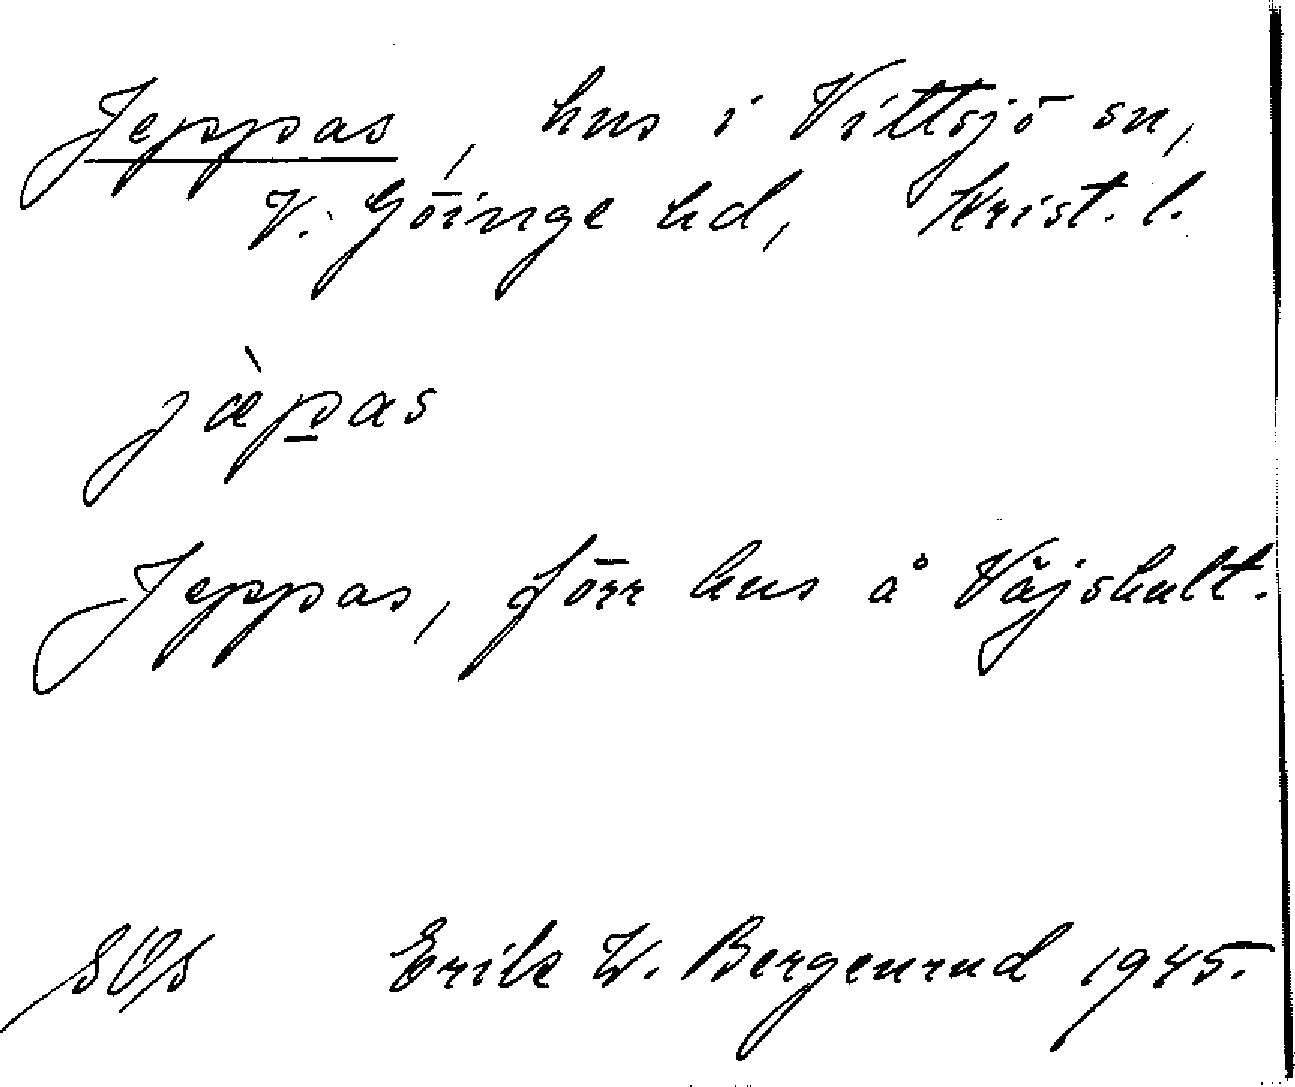 Jeppas, hus i Vittsjö sn,
V. Göinge hd, Krist. l.
jæ̀p̲as
Jeppas, förr hus å Våjshult.
Erik W. Bergenrud 1945.